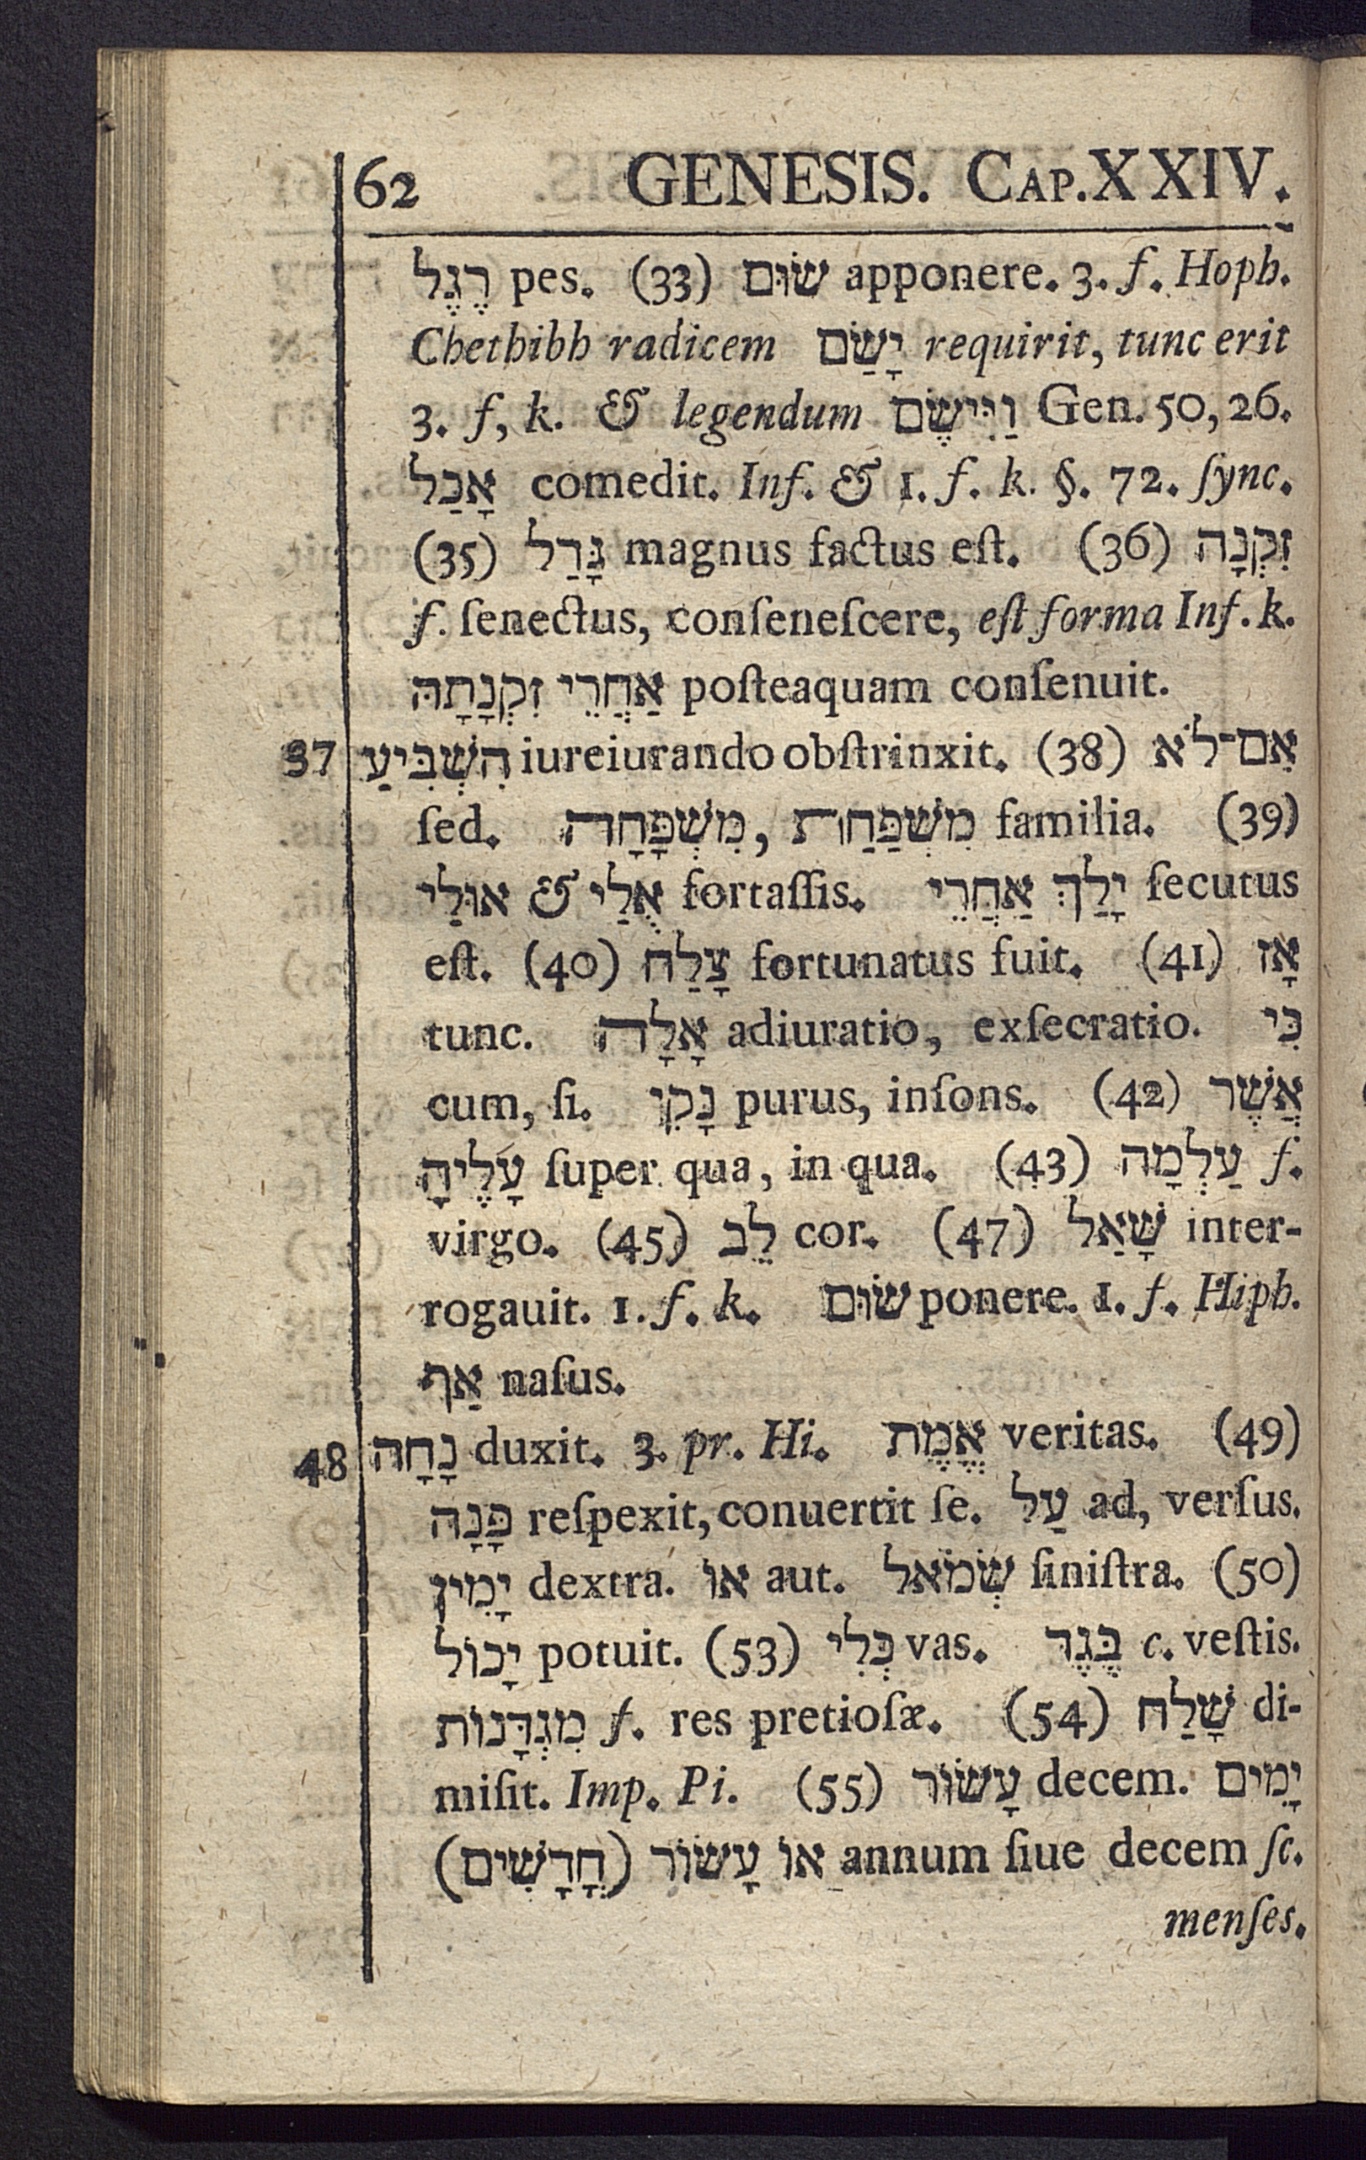 62 GENESIS. CAP. XXIV.
רֶגֶל pes. (33) שׂוּם apponere. 3. f. Hoph.
Chethibh radicem יָשַׂם requirit, tunc erit
3. f, k. & legendum וַיִּישֶׂם Gen. 50, 26.
אָכַל comedit. Inf. & 1. f. k. §. 72. ſync.
(35) גָּדַל magnus factus eſt. (36) זִקְנָה
f. ſenectus, conſeneſcere, eſt forma Inf. k.
אַחֲרֵי זִקְנָתָהּ poſteaquam conſenuit.
37 הִשְׁבִּיעַ iureiurando obſtrinxit. (38) אִם־לֹא
ſed. מִשְׁפָּחָה, מִשְׁפַּחַת familia. (39)
אוּלַי & אֻלַי fortaſſis. יָלַךְ אַחֲרֵי ſecutus
eſt. (40) צָלַח fortunatus fuit. (41) אָז
tunc. אָלָה adiuratio, exſecratio. כִּי
cum, ſi. נָקִי purus, inſons. (42) אֲשֶׁר
עָלֶיהָ ſuper qua, in qua. (43) עַלְמָה f.
virgo. (45) לֵב cor. (47) שָׁאַל inter-
rogauit. 1. f. k. שׂוּם ponere. 1. f. Hiph.
אַף naſus.
48 נָחָה duxit. 3. pr. Hi. אֱמֶת veritas. (49)
פָּנָה reſpexit, conuertit ſe. עַל ad, verſus.
יָמִין dextra. אוֹ aut. שְׂמֹאל ſiniſtra. (50)
יָכוֹל potuit. (53) כְּלִי vas. בֶּגֶד c. veſtis.
מִגְדָּנוֹת f. res pretioſæ. (54) שָׁלַח di-
miſit. Imp. Pi. (55) עָשׂוֹר decem. יָמִים
אוֹ עָשׂוֹר (חֳדָשִׁים) annum ſiue decem ſc.
menſes.